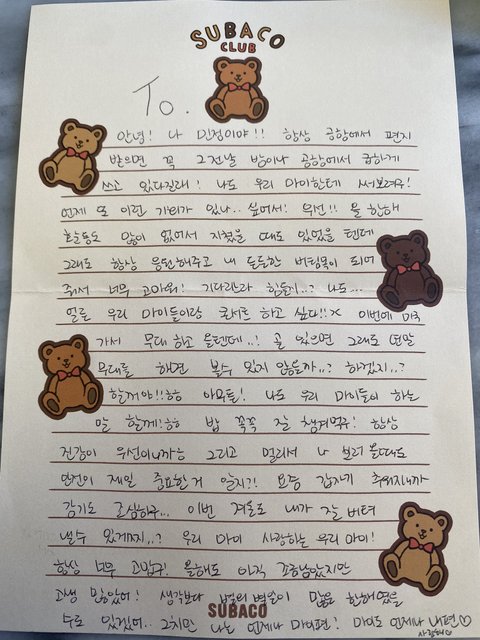 SUBACO
CLUB
To.
안녕! 나 민정이야!! 항상 공항에서 편지
받으면 꼭 그전날 밤이나 공항에서 급하게
쓰고 있다길래! 나도 우리 마이한테 써보려유!
언제 또 이런 기회가 있나.. 싶어서! 우선!! 올 한해
활동도 많이 없어서 지쳤을 때도 있었을 텐데
그래도 항상 응원해주고 내 든든한 버팀목이 되어
줘서 너무 고마워! 기다리느라 힘들지..? 나도...
얼른 우리 마이들이랑 콘서트 하고 싶다!! 이번에 미국
가서 무대 하고 올텐데..! 곧 있으면 그래도 연말
무대를 하면 볼수 있지 않을까..? 하겠지..?
할꺼야!!ㅎㅎ 아무튼! 나도 우리 마이들이 하는
말 할께!ㅎㅎ 밥 꼭꼭 잘 챙겨먹구! 항상
건강이 우선이니까능 그리고 멀리서 나 보러 올때도
안전이 제일 중요한거 알지?! 요즘 갑자기 추워지니까
감기도 조심하구... 이번 겨울도 내가 잘 버텨
낼수 있겠지..? 우리 마이 사랑하는 우리 마이!
항상 너무 고맙구! 올해도 아직 조금남았지만
고생 많았어! 생각보다 많은 한해였을
SUBACO
수도 있겠어.. 그치만 나는 언제나 마이편! 마이도 언제나 내편♡
사랑해♡